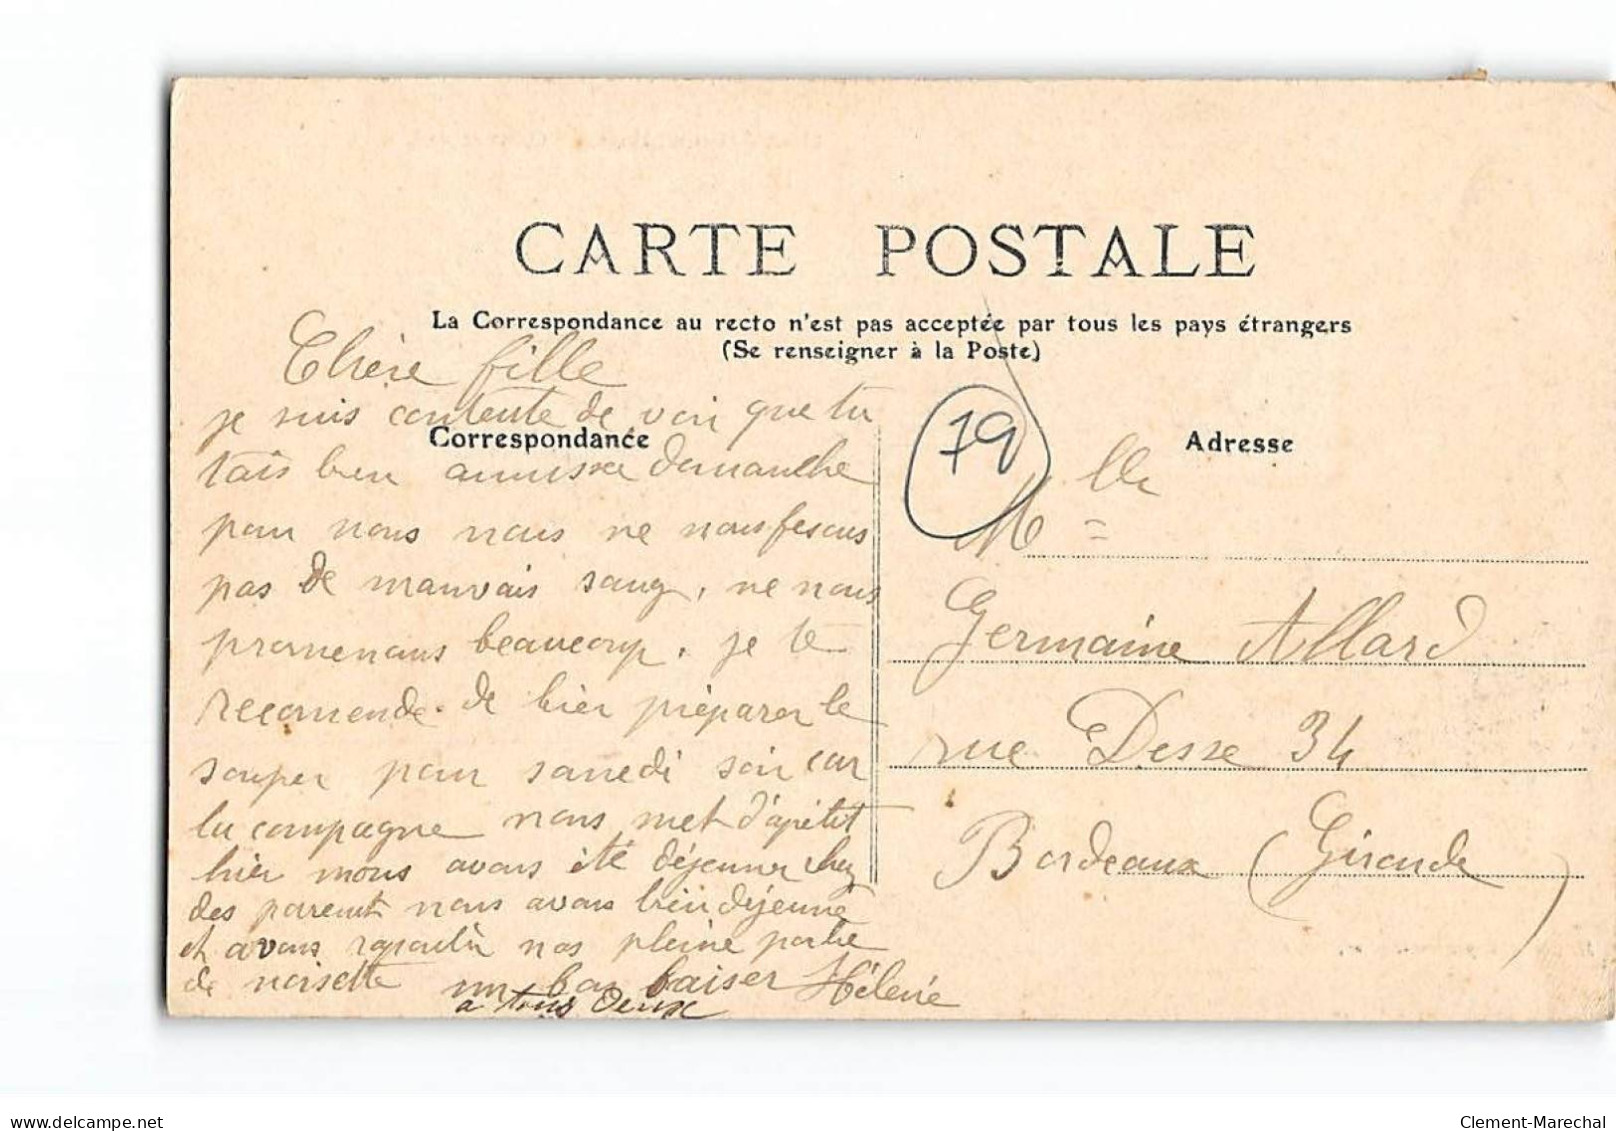 CARTE POSTALE
La Correspondance au recto n'est pas acceptée par tous les pays étrangers
(Se renseigner à la Poste)
Correspondance
Chère fille
je suis contente de voir que tu
tais bien amusser domanche
pour nous nous ne nous fesons
pas de mauvais sang, ne nous
promenons beaucoup, je te
recomende de bien préparer le
souper pour samedi soir car
la campagne nous met d'apétit
hier nous avons été déjeunner chez
des parents nous avons bien déjeunné
et avons raporter nos pleine poche
de noisette un bon baiser Hélène
a tous deux
79
Adresse
Mlle
Germaine Allard
rue Desse 34
Bordeaux (Gironde)
delcampe.net
Clement-Marechal